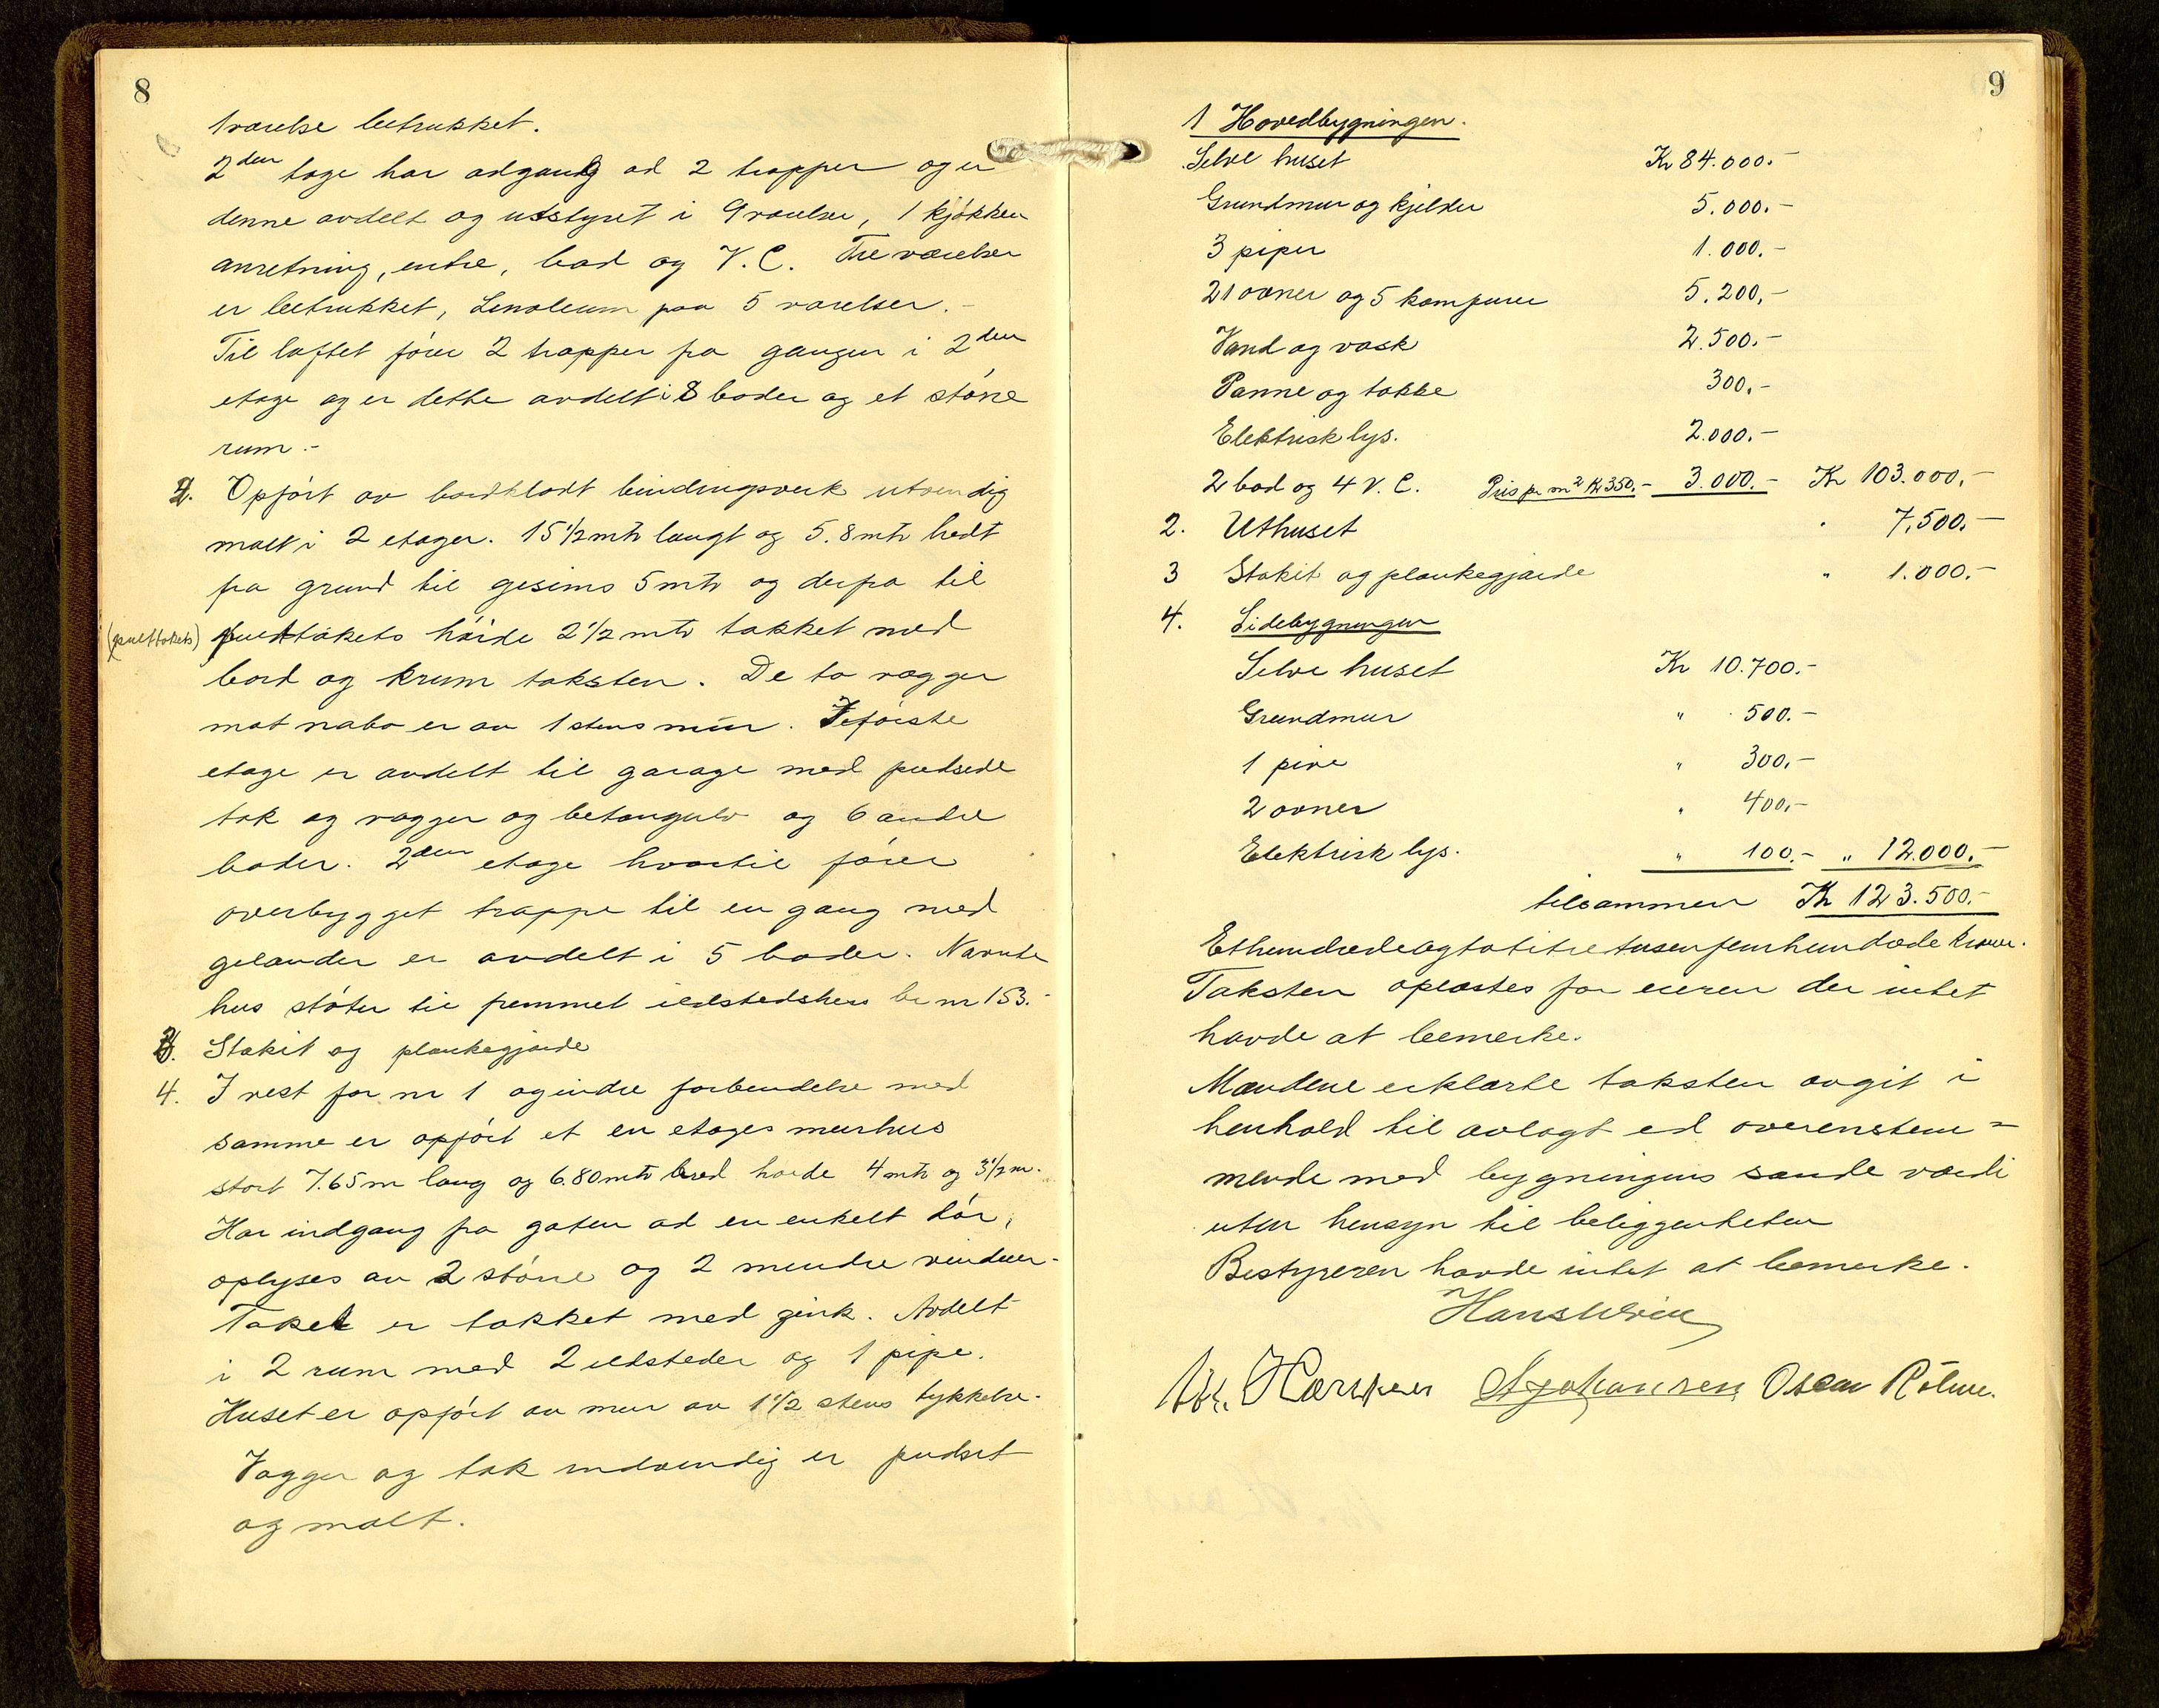 8
1 værelse betrukket.
2den tage har adgang ad 2 trapper og er
denne avdelt og utstyret i 9 værelser, 1 kjøkken
anretning, entre, bad og V. C. Tre værelser
er betrukket, Linoleum paa 5 værelser.-
Til loftet fører 2 trapper fra gangen i 2den
etage og er dette avdelt i 8 boder og et større
rum.-
2. Opført av bordklædt bindingsverk utvendig
malt i 2 etager. 15 1/2 mtr langt og 5.8 mtr bredt
fra grund til gesims 5 mtr og derfra til
(pulttakets) pulttakets høide 2 1/2 mtr tækket med
bord og krum taksten. De to vægger
mot nabo er av 1 stens mur. I første
etage er avdelt til garage med pudsede
tak og vægger og betongulv og 6 andre
boder. 2den etage hvortil fører
overbygget trappe til en gang med
gelænder er avdelt i 5 boder. Nævnte
hus støter til fremmet ildstedshus br nr 153.-
3. Stakit og plankegjærde
4. I vest for nr 1 og indre forbindelse med
samme er opført et en etages murhus
stort 7.65 m lang og 6.80 mtr bred høide 4 mtr og 3 1/2 m.
Har indgang fra gaten ad en enkelt dør,
oplyses av 2 større og 2 mindre vinduer-
Taket er tækket med zink. Avdelt
i 2 rum med 2 ildsteder og 1 pipe.
Huset er opført av mur av 1 1/2 stens tykkelse.
Vægger og tak indvendig er pudset
og malt.
9
1 Hovedbygningen.
Selve huset Kr 84.000.-
Grundmur og kjelder 5.000.-
3 piper 1.000.-
21 ovner og 5 komfurer 5.200,-
Vand og vask 2.500.-
Panne og takke 300,-
Elektrisk lys. 2.000.-
2 bad og 4 V. C. Pris pr m2 Kr 350.- 3.000.- Kr 103.000,-
2. Uthuset " 7,500.-
3 Stakit og plankegjærde " 1.000.-
4. Sidebygningen
Selve huset Kr 10.700.-
Grundmur " 500.-
1 pipe " 300,-
2 ovner " 400,-
Elektrisk lys. " 100.- " 12.000.-
tilsammen Kr 123.500.-
Ethundredeogtotitretusenfemhundrede kroner.
Taksten oplæstes for eieren der intet
havde at bemerke.
Mændene erklærte taksten avgit i
henhold til avlagt ed overenstem=
mende med bygningens sande værdi
uten hensyn til beliggenheten
Bestyreren havde intet at bemerke.
Hans
Hansen A Johansen Oscar